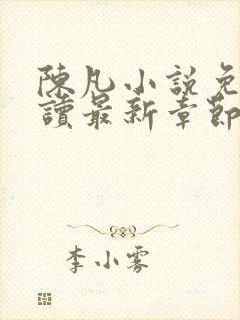 陳凡小說免
讀最新章節
李小雾